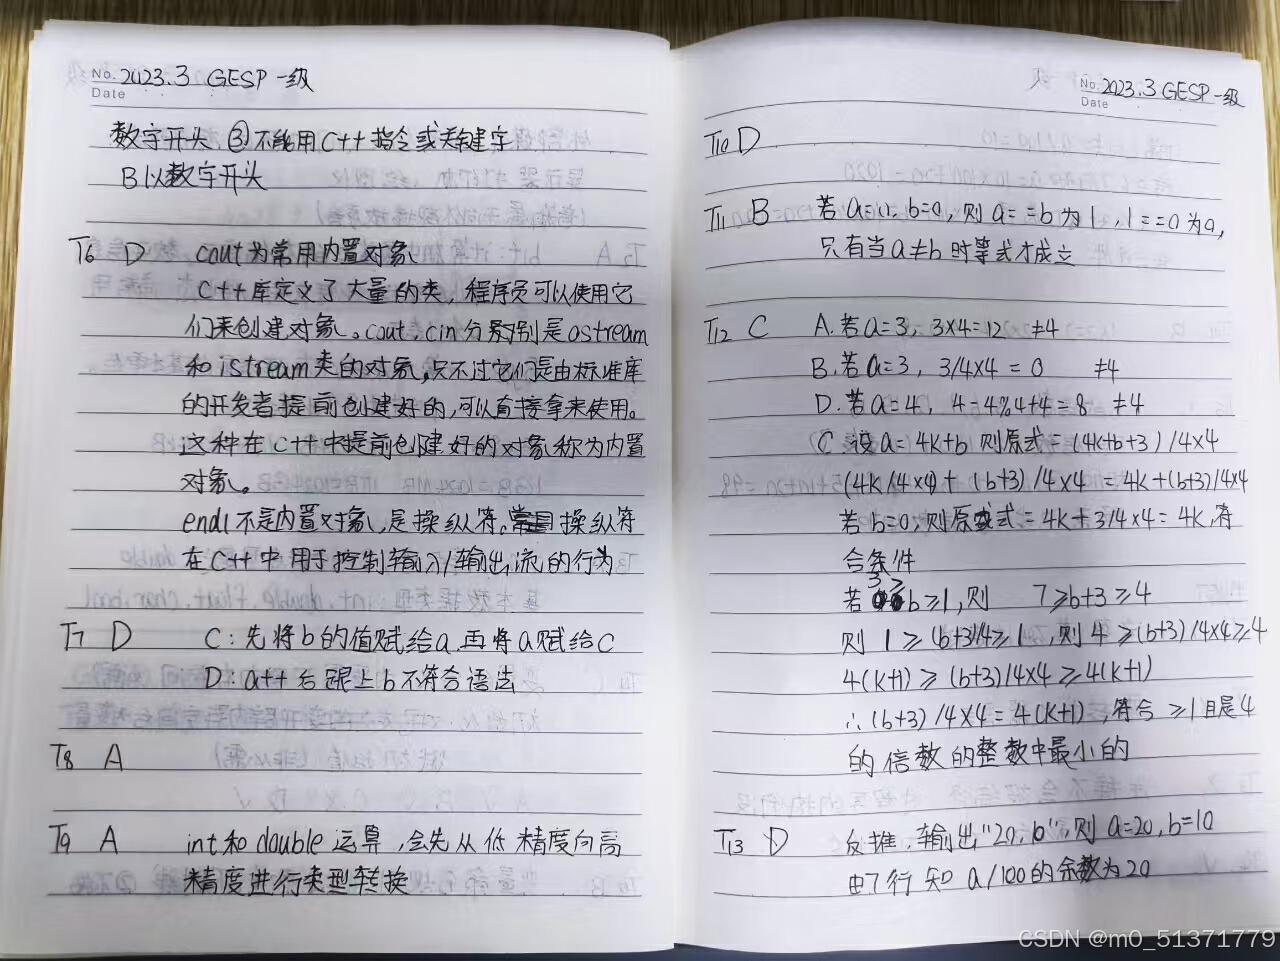 No. 2023.3 GESP 一级
Date
数字开头 ③不能用C++指令或关键字
B以数字开头
T6 D cout为常用内置对象
C++库定义了大量的类，程序员可以使用它
们来创建对象。cout，cin分别是ostream
和istream类的对象，只不过它们是由标准库
的开发者提前创建好的，可以直接拿来使用。
这种在C++中提前创建好的对象称为内置
对象。
endl不是内置对象，是操纵符。操纵符
在C++中用于控制输入/输出流的行为
T7 D C：先将b的值赋给a，再将a赋给C
D：a++后跟上b不符合语法
T8 A
T9 A int和double运算，会先从低精度向高
精度进行类型转换
No. 2023.3 GESP 一级
Date
T10 D
T11 B 若 b=0，则a==b为1，1==0为0，
只有当a≠b时等式才成立
T12 C A.若a=3，3×4=12 ≠4
B.若a=3，3/4×4=0 ≠4
D.若a=4，4-4%4+4=8 ≠4
C.设a=4k+b 则原式=(4k+b+3)/4×4
(4k/4×4)+(b+3)/4×4 =4k+(b+3)/4×4
若b=0，则原式=4k+3/4×4=4k，符
合条件
若3≥b≥1，则 7≥b+3≥4
则 1≥(b+3)/4≥1，则4≥(b+3)/4×4≥4
4(k+1)≥(b+3)/4×4≥4(k+1)
∴(b+3)/4×4=4(k+1)，符合≥1且是4
的倍数的整数中最小的
T13 D 反推，输出"20，10"，则a=20，b=10
由7行知a/100的余数为20
CSDN @m0_51371779